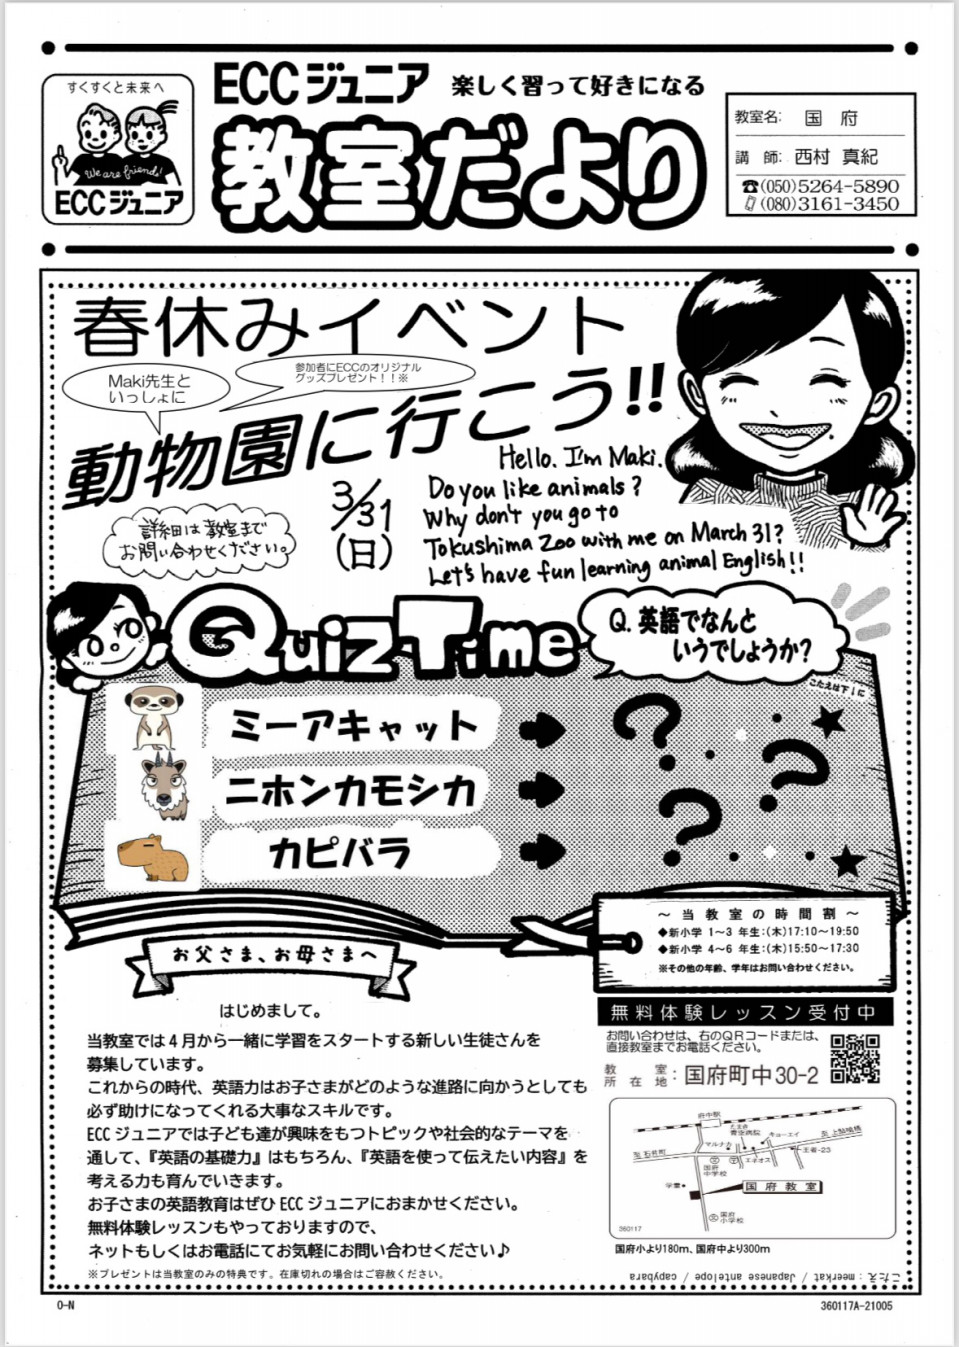 すくすくと未来へ
We are friends!
ECCジュニア
ECCジュニア 楽しく習って好きになる
教室だより
教室名: 国 府
講 師: 西村 真紀
☎(050)5264-5890
(080)3161-3450
春休みイベント
Maki先生と
いっしょに
参加者にECCのオリジナル
グッズプレゼント！！※
動物園に行こう!!
3/31
(日)
詳細は教室まで
お問い合わせください。
Hello. I'm Maki.
Do you like animals?
Why don't you go to
Tokushima Zoo with me on March 31?
Let's have fun learning animal English!!
Quiz Time
Q. 英語でなんと
いうでしょうか?
こたえは下↓に
ミーアキャット
ニホンカモシカ
カピバラ
～ 当教室の時間割 ～
◆新小学 1～3 年生:(木)17:10～19:50
◆新小学 4～6 年生:(木)15:50～17:30
※その他の年齢、学年はお問い合わせください。
お父さま、お母さまへ
はじめまして。
当教室では 4 月から一緒に学習をスタートする新しい生徒さんを
募集しています。
これからの時代、英語力はお子さまがどのような進路に向かうとしても
必ず助けになってくれる大事なスキルです。
ECC ジュニアでは子ども達が興味をもつトピックや社会的なテーマを
通して、『英語の基礎力』はもちろん、『英語を使って伝えたい内容』を
考える力も育んでいきます。
お子さまの英語教育はぜひ ECC ジュニアにおまかせください。
無料体験レッスンもやっておりますので、
ネットもしくはお電話にてお気軽にお問い合わせください♪
※プレゼントは当教室のみの特典です。在庫切れの場合はご容赦ください。
無料体験レッスン受付中
お問い合わせは、右のＱＲコードまたは、
直接教室までお電話ください。
教室所在地: 国府町中30-2
府中駅
たまき青空病院
マルナカ
キョーエイ
至 石井町
至 上鮎喰橋
エネオス
王将-23
国府中学校
学童
国府教室
国府小学校
360117
国府小より180m、国府中より300m
こたえ：meerkat / Japanese antelope / capybara
O-N
360117A-21005